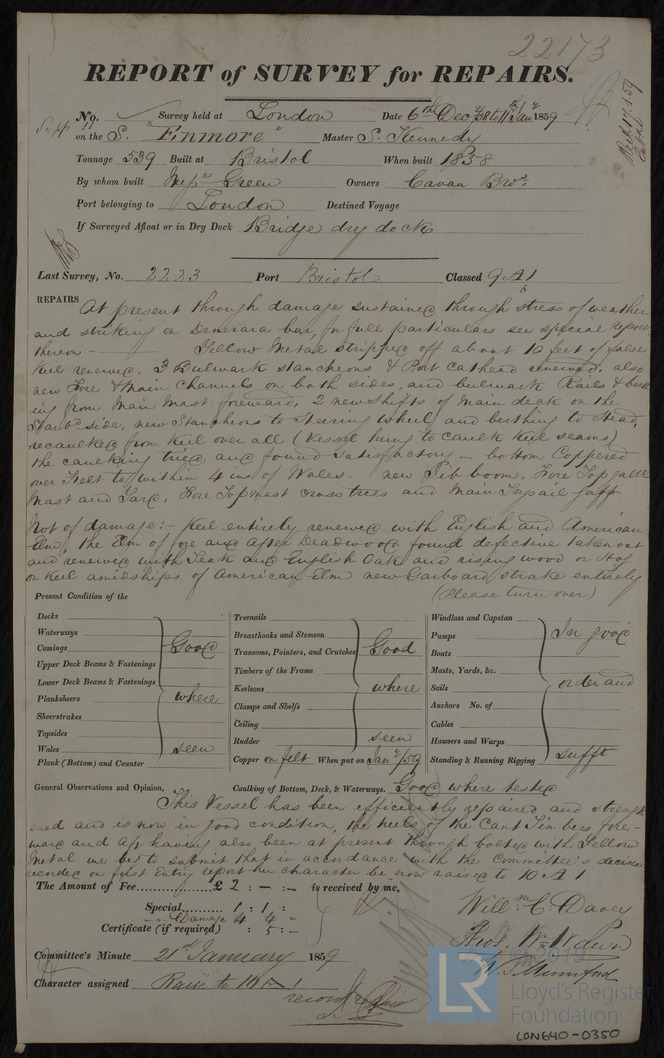 22173
REPORT of SURVEY for REPAIRS.
No. Survey held at London Date 6th Decr 58 to 11th Jany 1859
on the S. "Finmore" Master S. Kennedy
Tonnage 539 Built at Bristol When built 1858
By whom built Messrs Green Owners Cavan Bros.
Port belonging to London Destined Voyage
If Surveyed Afloat or in Dry Dock Bridge dry dock
Last Survey, No. 2223 Port Bristol Classed 9 A 1
REPAIRS At present through damage sustained through stress of weather
and striking on Demerara bar, for full particulars see special report
thereon - Yellow Metal stripped off about 10 feet of false
Keel renewed. 3 Bulwark stancheons & Port Cathead renewed. also
new Fore & Main Channels on both sides, and bulwark Rails & berth
ing from Main Mast foreward, 2 new shifts of Main deck on the
Starbd side, new Stancheons to Steering wheel and berthing to Head,
recaulked from keel over all (Vessel hung to caulk keel seams)
the caulking tried and found Satisfactory - bottom Coppered
over Felt to within 4 ins of Wales. new Jib boom, Fore Top gallt
Mast and Yard, Fore Topmast cross trees and Main Trysail gaff
Not of damage:- Keel entirely renewed with English and American
Elm, the Elm of fore and after Deadwood found defective taken out
and renewed with Teak and English Oak and rising wood or Hog
on keel amidships of American Elm new Garboard strake entirely
Present Condition of the (Please turn over)
Decks
Waterways
Comings
Upper Deck Beams & Fastenings
Lower Deck Beams & Fastenings
Planksheers
Sheerstrakes
Topsides
Wales
Good where seen
Plank (Bottom) and Counter
Treenails
Breasthooks and Stemson
Transoms, Pointers, and Crutches
Timbers of the Frame
Keelsons
Clamps and Shelfs
Ceiling
Rudder
Good where seen
Copper on felt When put on Jany /59
Windlass and Capstan
Pumps
Boats
Masts, Yards, &c.
Sails
Anchors No. of
Cables
Hawsers and Warps
Standing & Running Rigging
In good order and sufft
General Observations and Opinion, Caulking of Bottom, Deck, & Waterways. Good where tested
This Vessel has been efficiently repaired and strength
ened and is now in good condition, the heels of the Cant Timbers fore-
ward and aft having also been at present through bolted with Yellow
Metal we beg to submit that in accordance with the Committee's decision
on first Entry report her character be now raised to 10 A 1
The Amount of Fee £ 2 : - : - is received by me,
Special 1 : 1 : -
Damage 4 4 -
Certificate (if required) : 5 : -
Willm C Davey
Committee's Minute 21st January 1859
Character assigned Raise to 10 A 1
© 2019
LR
Lloyd's Register
Foundation
LON640-0350